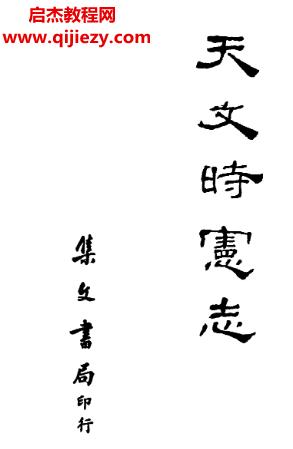 启杰教程网
www.qijiezy.com
天文時憲志
集文書局印行